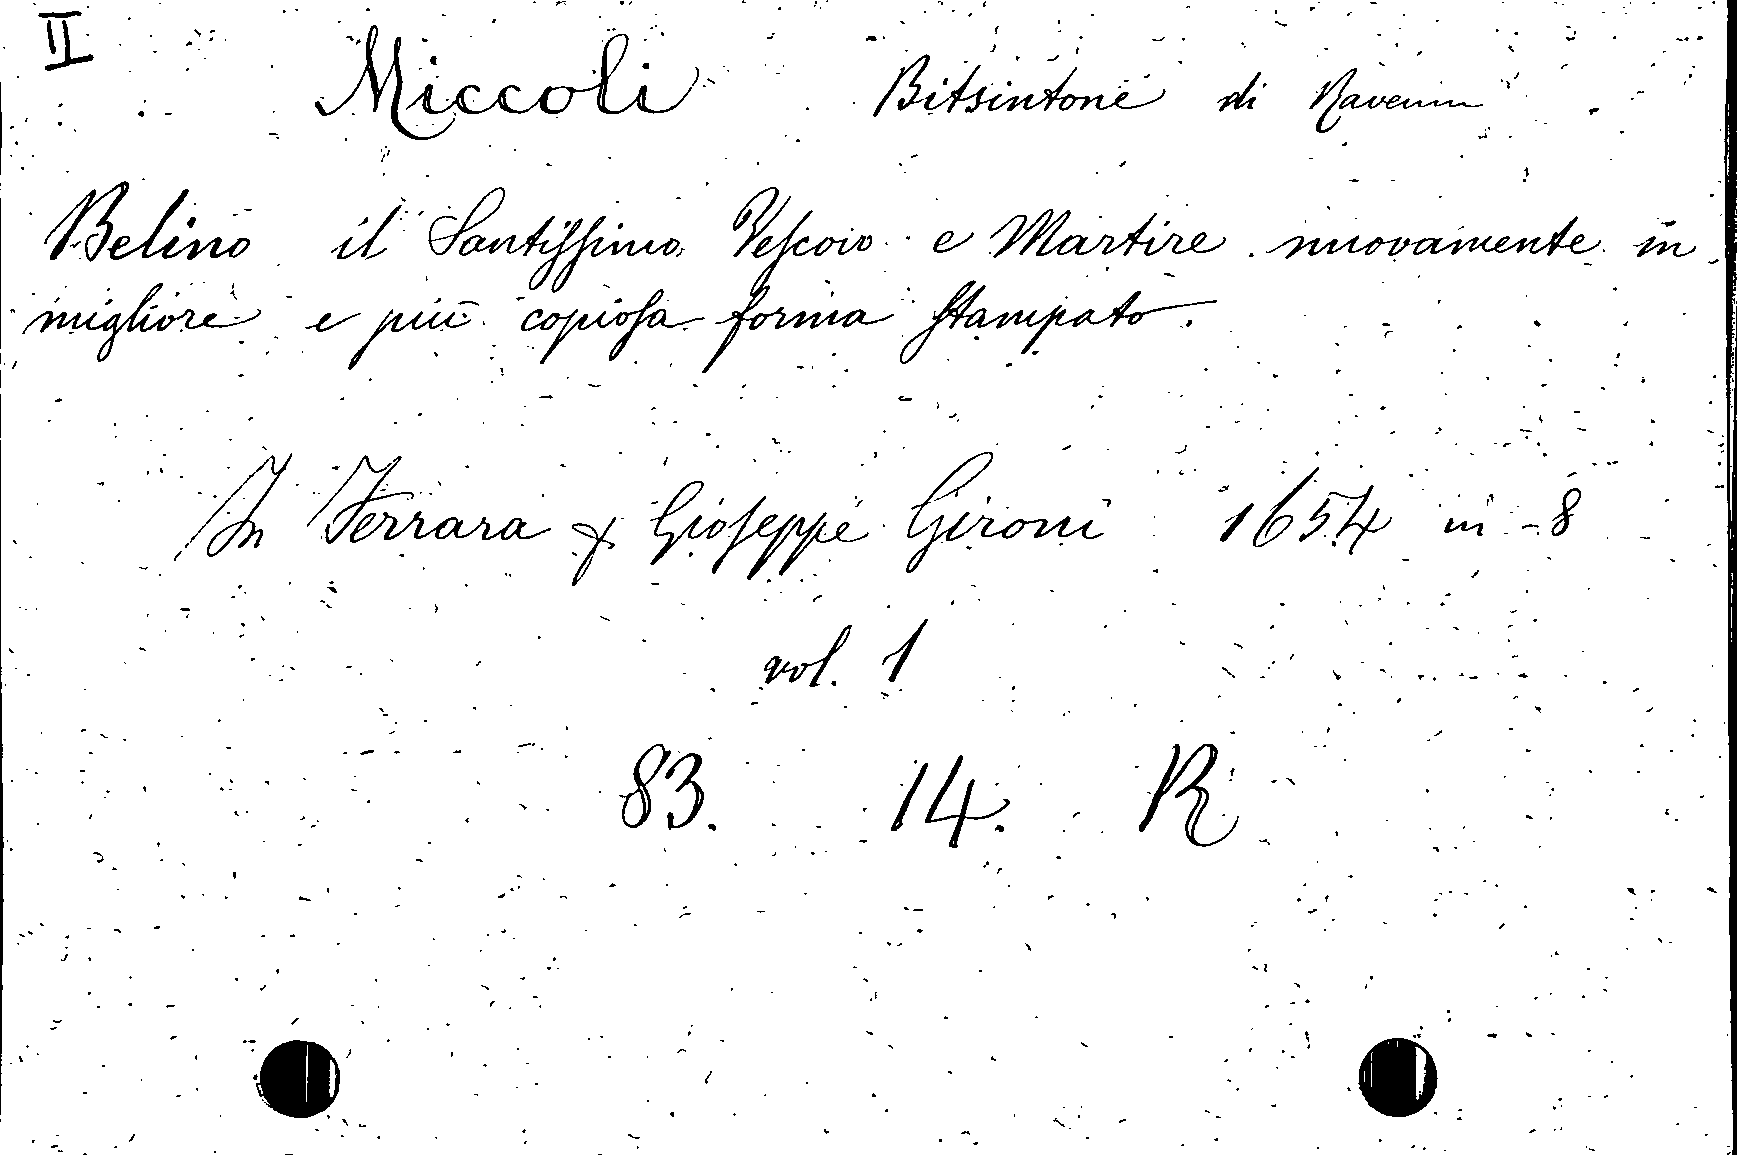 II
Miccoli Bitsintone di Ravenna
Belino il Santiſſimo Veſcovo e Martire nuovamente in
migliore e più copioſa forma ſtampato.
In Ferrara p Gioſeppe Gironi 1654 in -8
vol. 1
83. 14. R